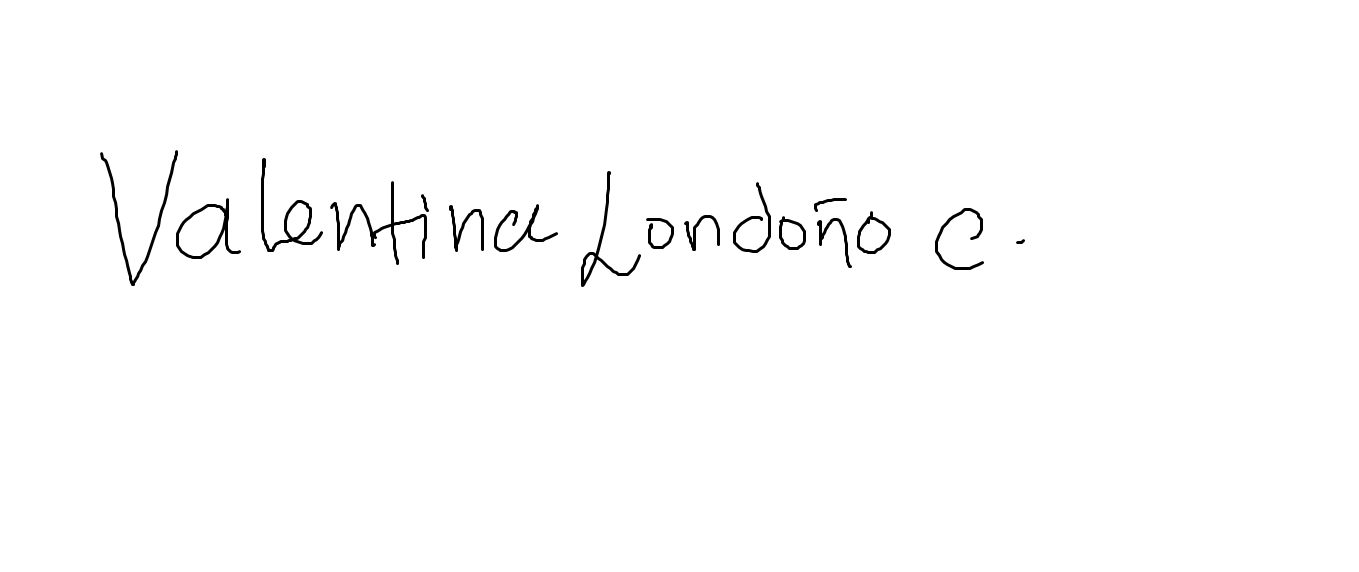 Valentina Londoño C.